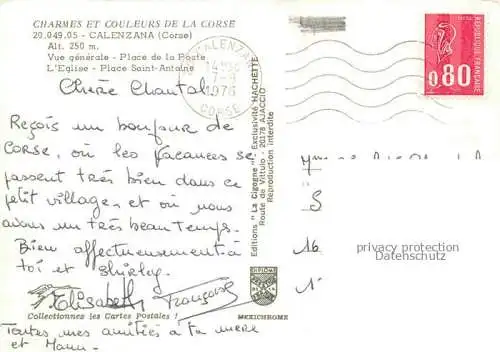 CHARMES ET COULEURS DE LA CORSE
20.049.05 - CALENZANA (Corse)
Alt. 250 m.
Vue générale - Place de la Poste
L'Eglise - Place Saint-Antoine
Chère Chantal
Reçois un bonjour de
CORSE, où les vacances se
passent très bien dans ce
petit village, et où nous
avons un très beau temps.
Bien affectueusement à
toi et Shirley.
Elisabeth Françoise
Collectionnez les Cartes Postales !
Toutes mes amitiés à ta mère
et Manu.
CALENZANA
7-9
1976
CORSE
Editions "La Cigogne" - Exclusivité HACHETTE
Route de Vittulo - 20178 AJACCIO
Reproduction interdite
MEXICHROME
REPUBLIQUE FRANÇAISE
0,80
S
16
privacy protection
Datenschutz